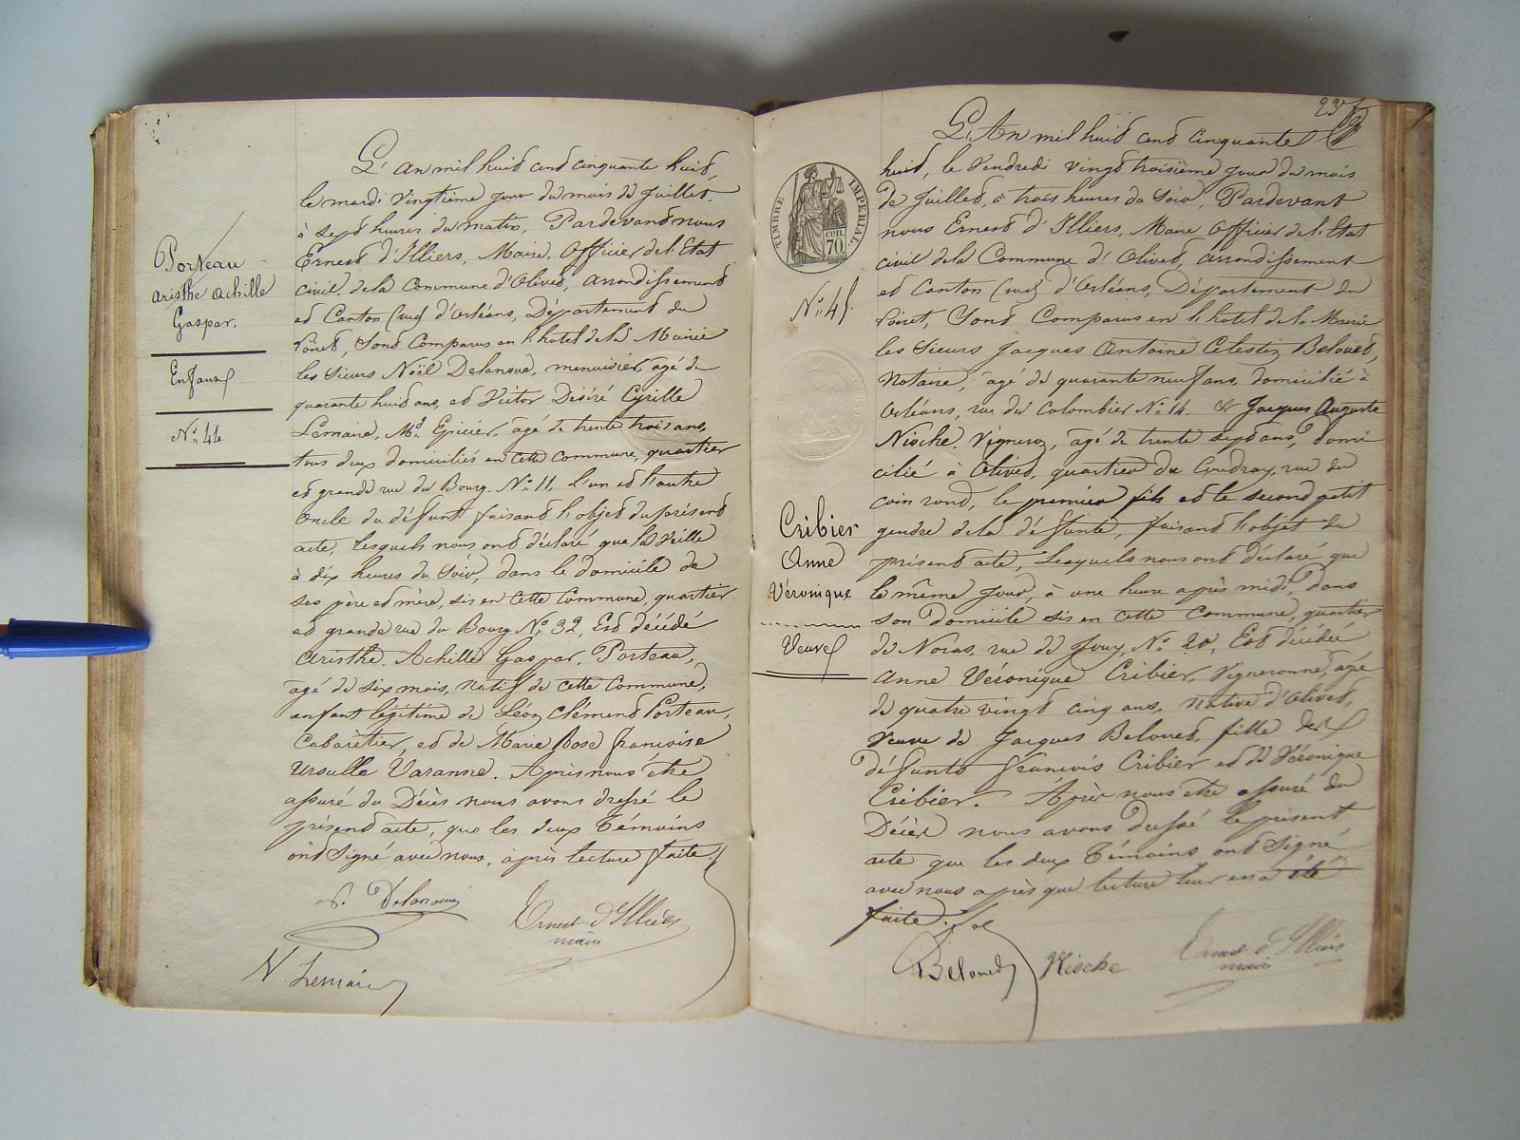 Porteau
Aristhe Achille
Gaspar.
Enfant
N.° 44
L'an mil huit cent cinquante huit,
le mardi vingtième jour du mois de Juillet.
à sept heures du matin, Pardevant nous
Ernest d'Illiers, Maire, Officier de l'Etat
civil de la Commune d'Olivet, arrondissement
et Canton (sud) d'Orléans, Département du
Loiret, Sont Comparus en l'hotel de la Mairie
les Sieurs Noël Delanoue, menuisier, agé de
quarante huit ans, et Victor Désiré Cyrille
Lemaire, Md Epicier, agé de trente trois ans,
tous deux domiciliés en cette Commune, quartier
et grande rue du Bourg N.° 11, l'un et l'autre
oncle du défunt faisant l'objet du présent
acte, lesquels nous ont déclaré que la Veille
à dix heures du Soir, dans le domicile de
ses père et mère, sis en cette Commune, quartier
et grande rue du Bourg N.° 32, Est décédé
Aristhe Achille Gaspar Porteau,
agé de six mois, natif de cette Commune,
enfant légitime de Léon Clément Porteau,
Cabaretier, et de Marie Rose françoise
Ursulle Varanne. Après nous être
assuré du Décès nous avons dressé le
présent acte, que les deux Témoins
ont Signé avec nous, après lecture faite.
Delanoue
Ernest d'Illiers
maire
V Lemaire
TIMBRE IMPERIAL
70
N.° 45
Cribier
Anne
Véronique
Veuve
237
L'An mil huit cent cinquante
huit, le Vendredi vingt troisième jour du mois
de Juillet, à trois heures du Soir, Pardevant
nous Ernest d'Illiers, Maire Officier de l'Etat
civil de la Commune d'Olivet, arrondissement
et Canton (sud) d'Orléans, Département du
Loiret, Sont Comparus en l'hotel de la Mairie
les Sieurs Jacques Antoine Celestin Belouet,
Notaire, agé de quarante neuf ans, domicilié à
Orléans, rue du Colombier N.° 14. et Jacques Auguste
Nische, Vigneron, agé de trente sept ans, domi
cilié à Olivet, quartier du Coudray, rue du
coin rond, le premier fils et le second petit
gendre de la défunte, faisant l'objet du
présent acte, Lesquels nous ont déclaré que
le même Jour, à une heure après midi, dans
son domicile sis en cette Commune, quartier
de Noras, rue de Jouy, N.° 20, Est décédée
Anne Véronique Cribier, Vigneronne, agée
de quatre vingt cinq ans, native d'Olivet,
Veuve de Jacques Belouet, fille de
défunts François Cribier et de Véronique
Cribier. Après nous être assuré du
Décès nous avons dressé le présent
acte que les deux Témoins ont Signé
avec nous après que lecture leur en a été
faite.
Belouet
Nische
Ernest d'Illiers
maire